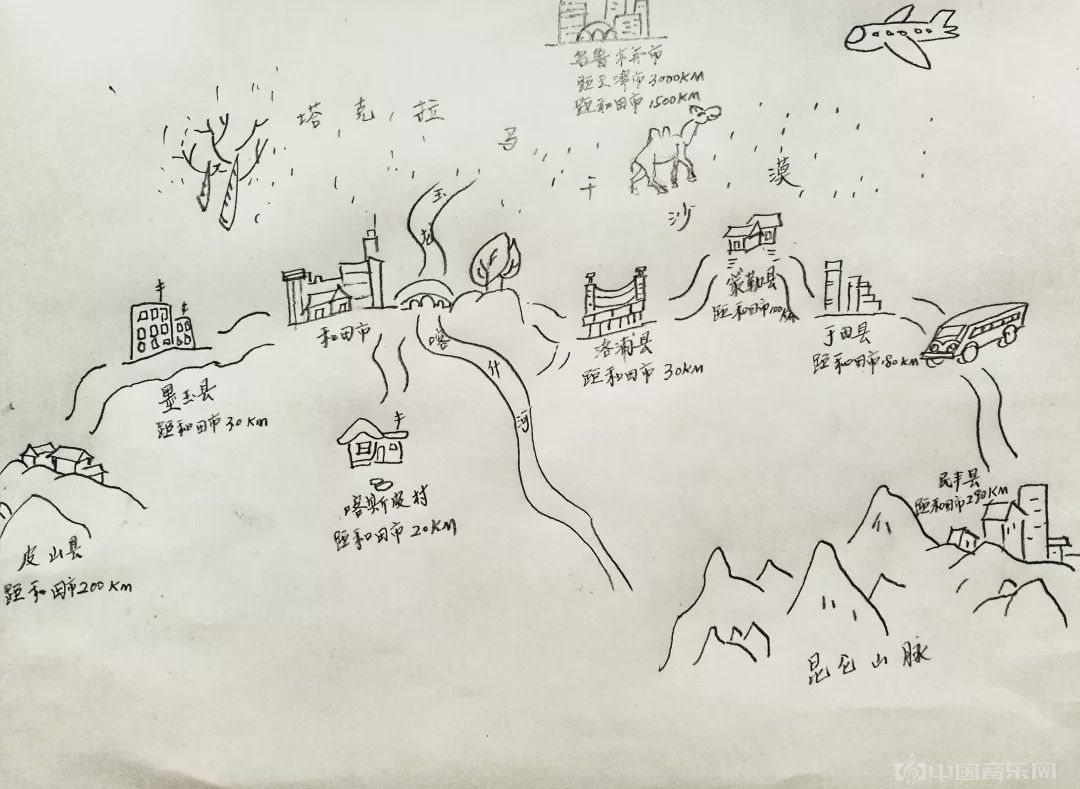 乌鲁木齐市
距天津市3000KM
距和田市1500KM
塔克拉
马
干
沙
漠
玉
龙
喀
什
河
和田市
墨玉县
距和田市30KM
皮山县
距和田市200KM
喀斯皮村
距和田市20KM
洛浦县
距和田市30KM
策勒县
距和田市100KM
于田县
距和田市180KM
民丰县
距和田市290KM
昆仑山脉
中国音乐网